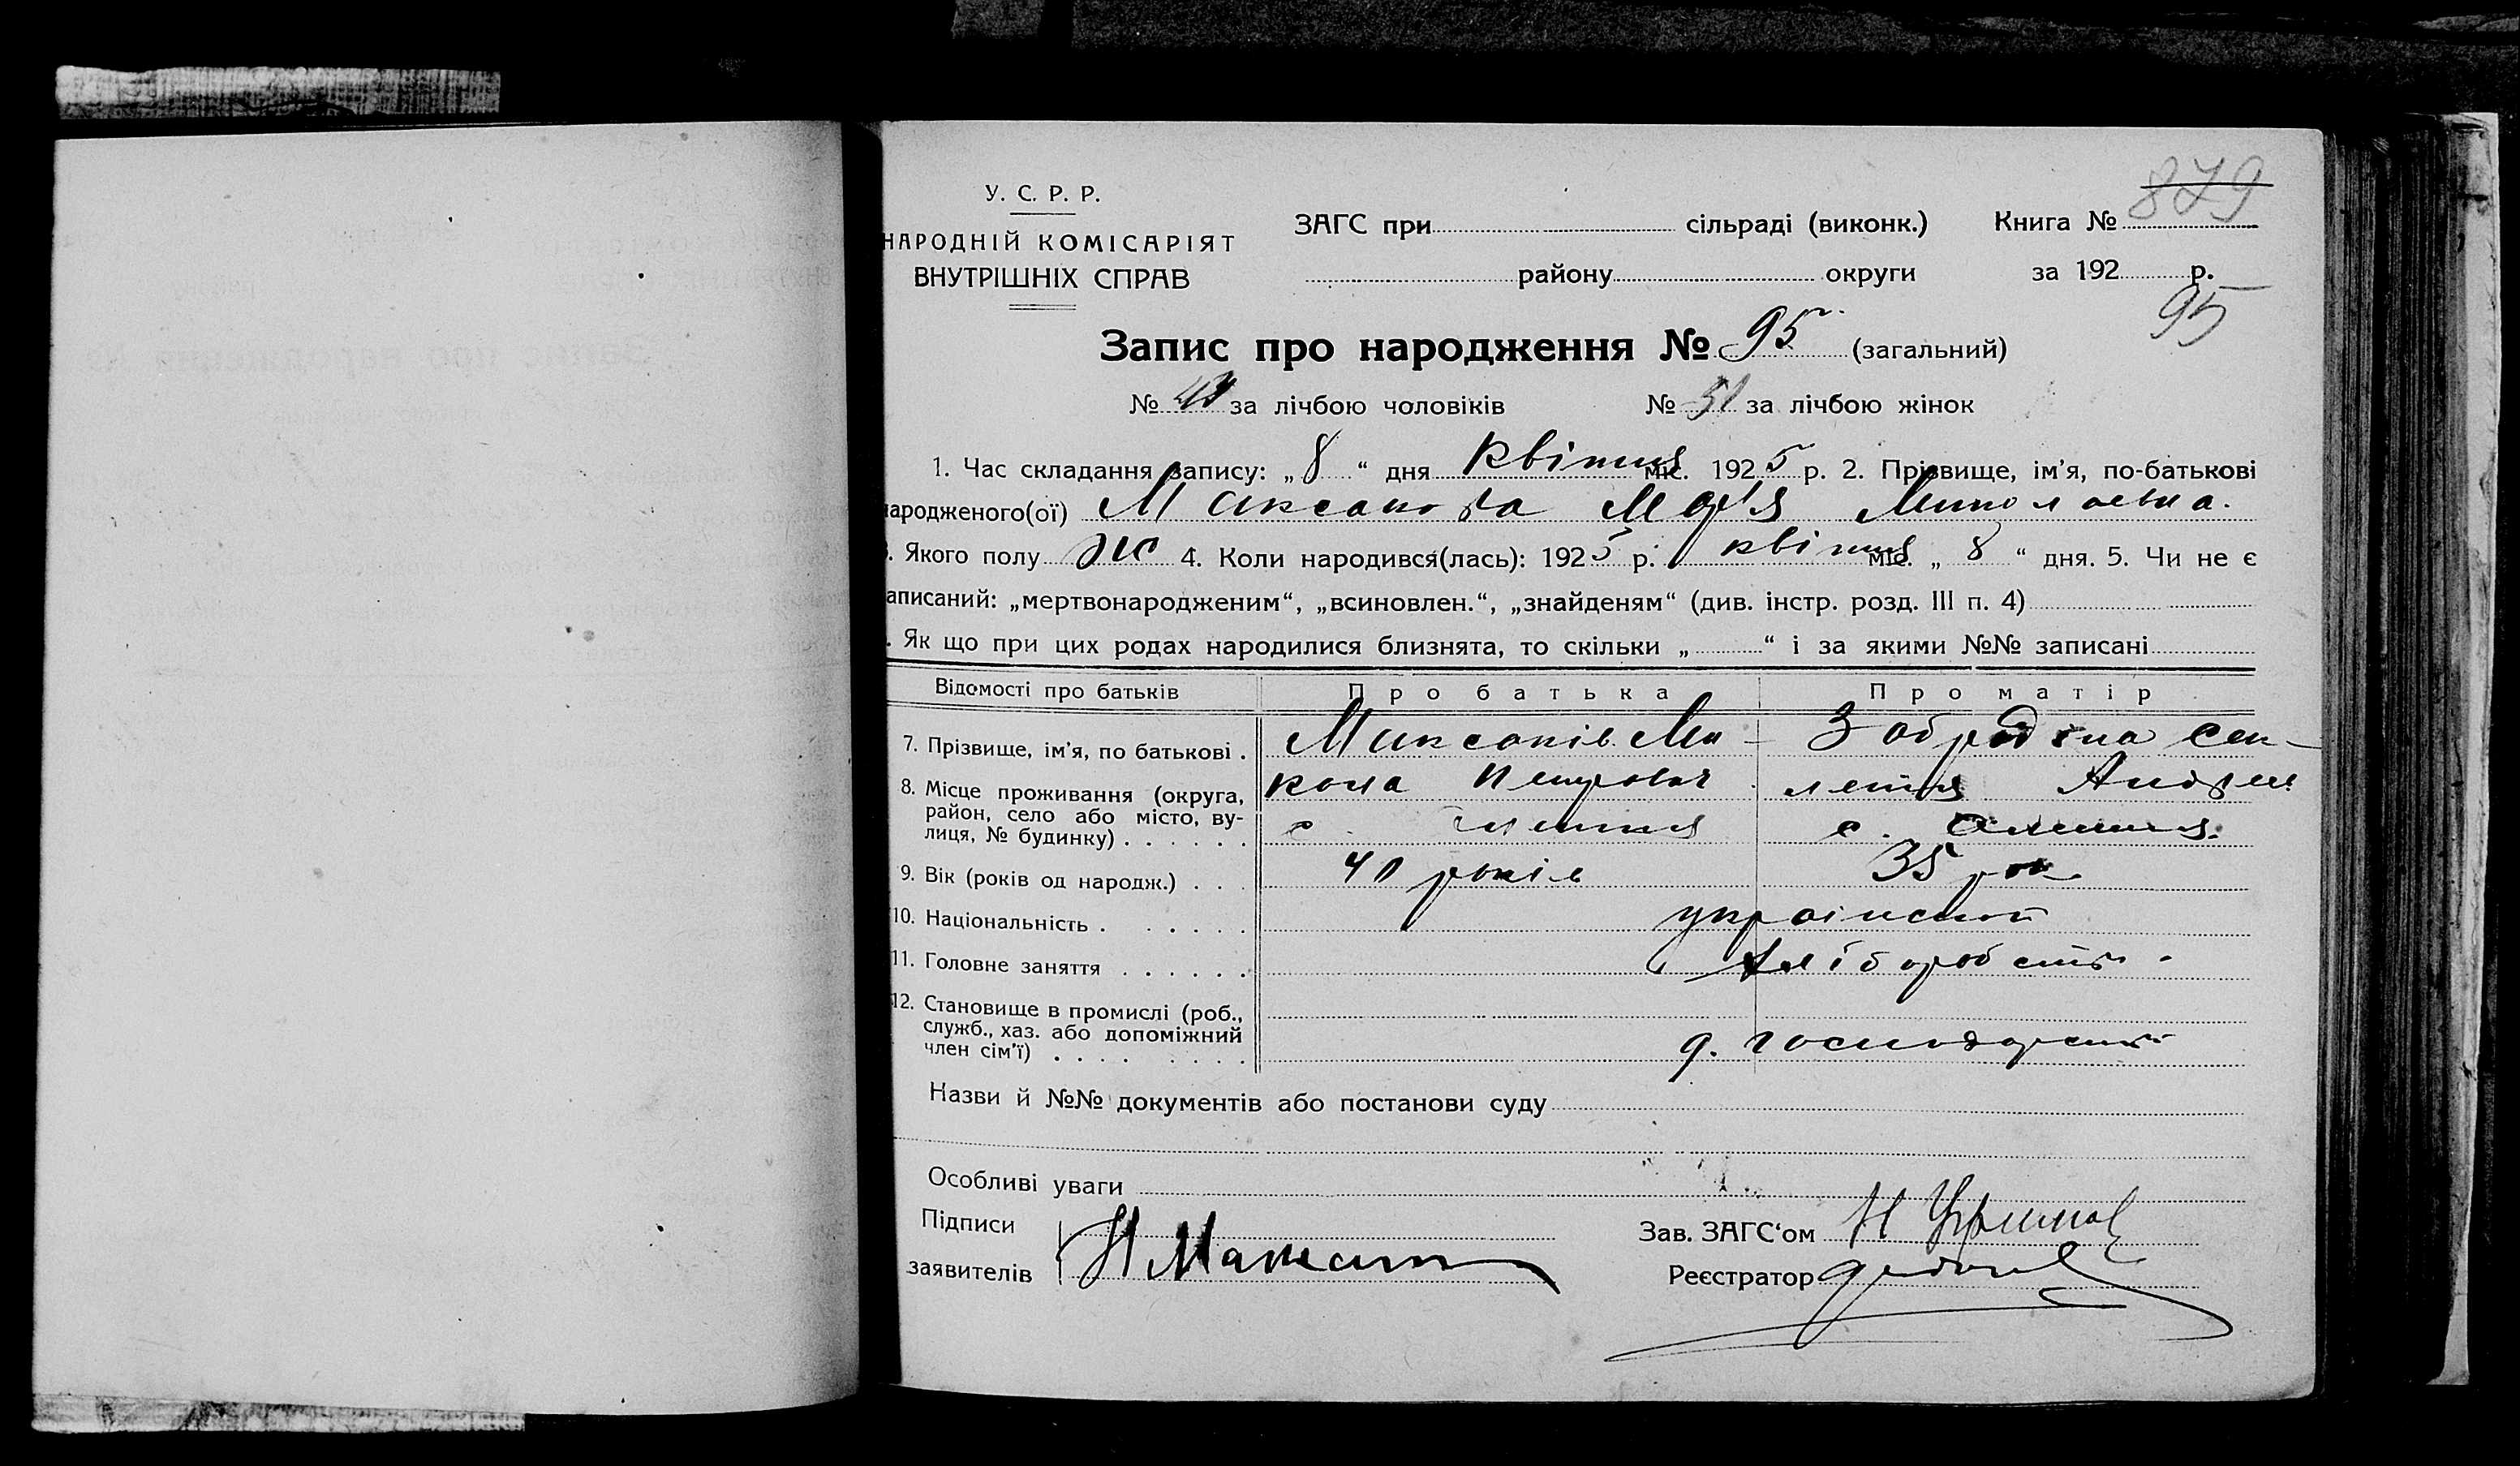 879
У. С. Р. Р.
НАРОДНІЙ КОМІСАРІЯТ
ВНУТРІШНІХ СПРАВ
ЗАГС при сільраді (виконк.) Книга №
району округи за 192 р.
95
Запис про народження № 95 (загальний)
№ за лічбою чоловіків № 51 за лічбою жінок
1. Час складання запису: „8“ дня квітня міс. 1925 р. 2. Прізвище, ім'я, по-батькові
народженого(ої) Максакова Мар'я Миколаевна.
3. Якого полу жіс 4. Коли народився(лась): 1925 р. квітня міс. „8“ дня. 5. Чи не є
записаний: „мертвонародженим“, „всиновлен.“, „знайденям“ (див. інстр. розд. III п. 4)
. Як що при цих родах народилися близнята, то скільки „ “ і за якими №№ записані
Відомості про батьків Про батька Про матір
7. Прізвище, ім'я, по батькові . Максаків Ми-
кола Петрович
8. Місце проживання (округа,
район, село або місто, ву-
лиця, № будинку) . . . . . . с. с.
9. Вік (років од народж.) . . . 40 років 35 рок
10. Національність . . . . . . українскої
11. Головне заняття . . . . . . хліборобств.
12. Становище в промислі (роб.,
служб., хаз. або допоміжний
член сім'ї) . . . . . . . . господарств
Назви й №№ документів або постанови суду
Особливі уваги
Підписи
заявителів Н Максак
Зав. ЗАГС'ом
Реєстратор